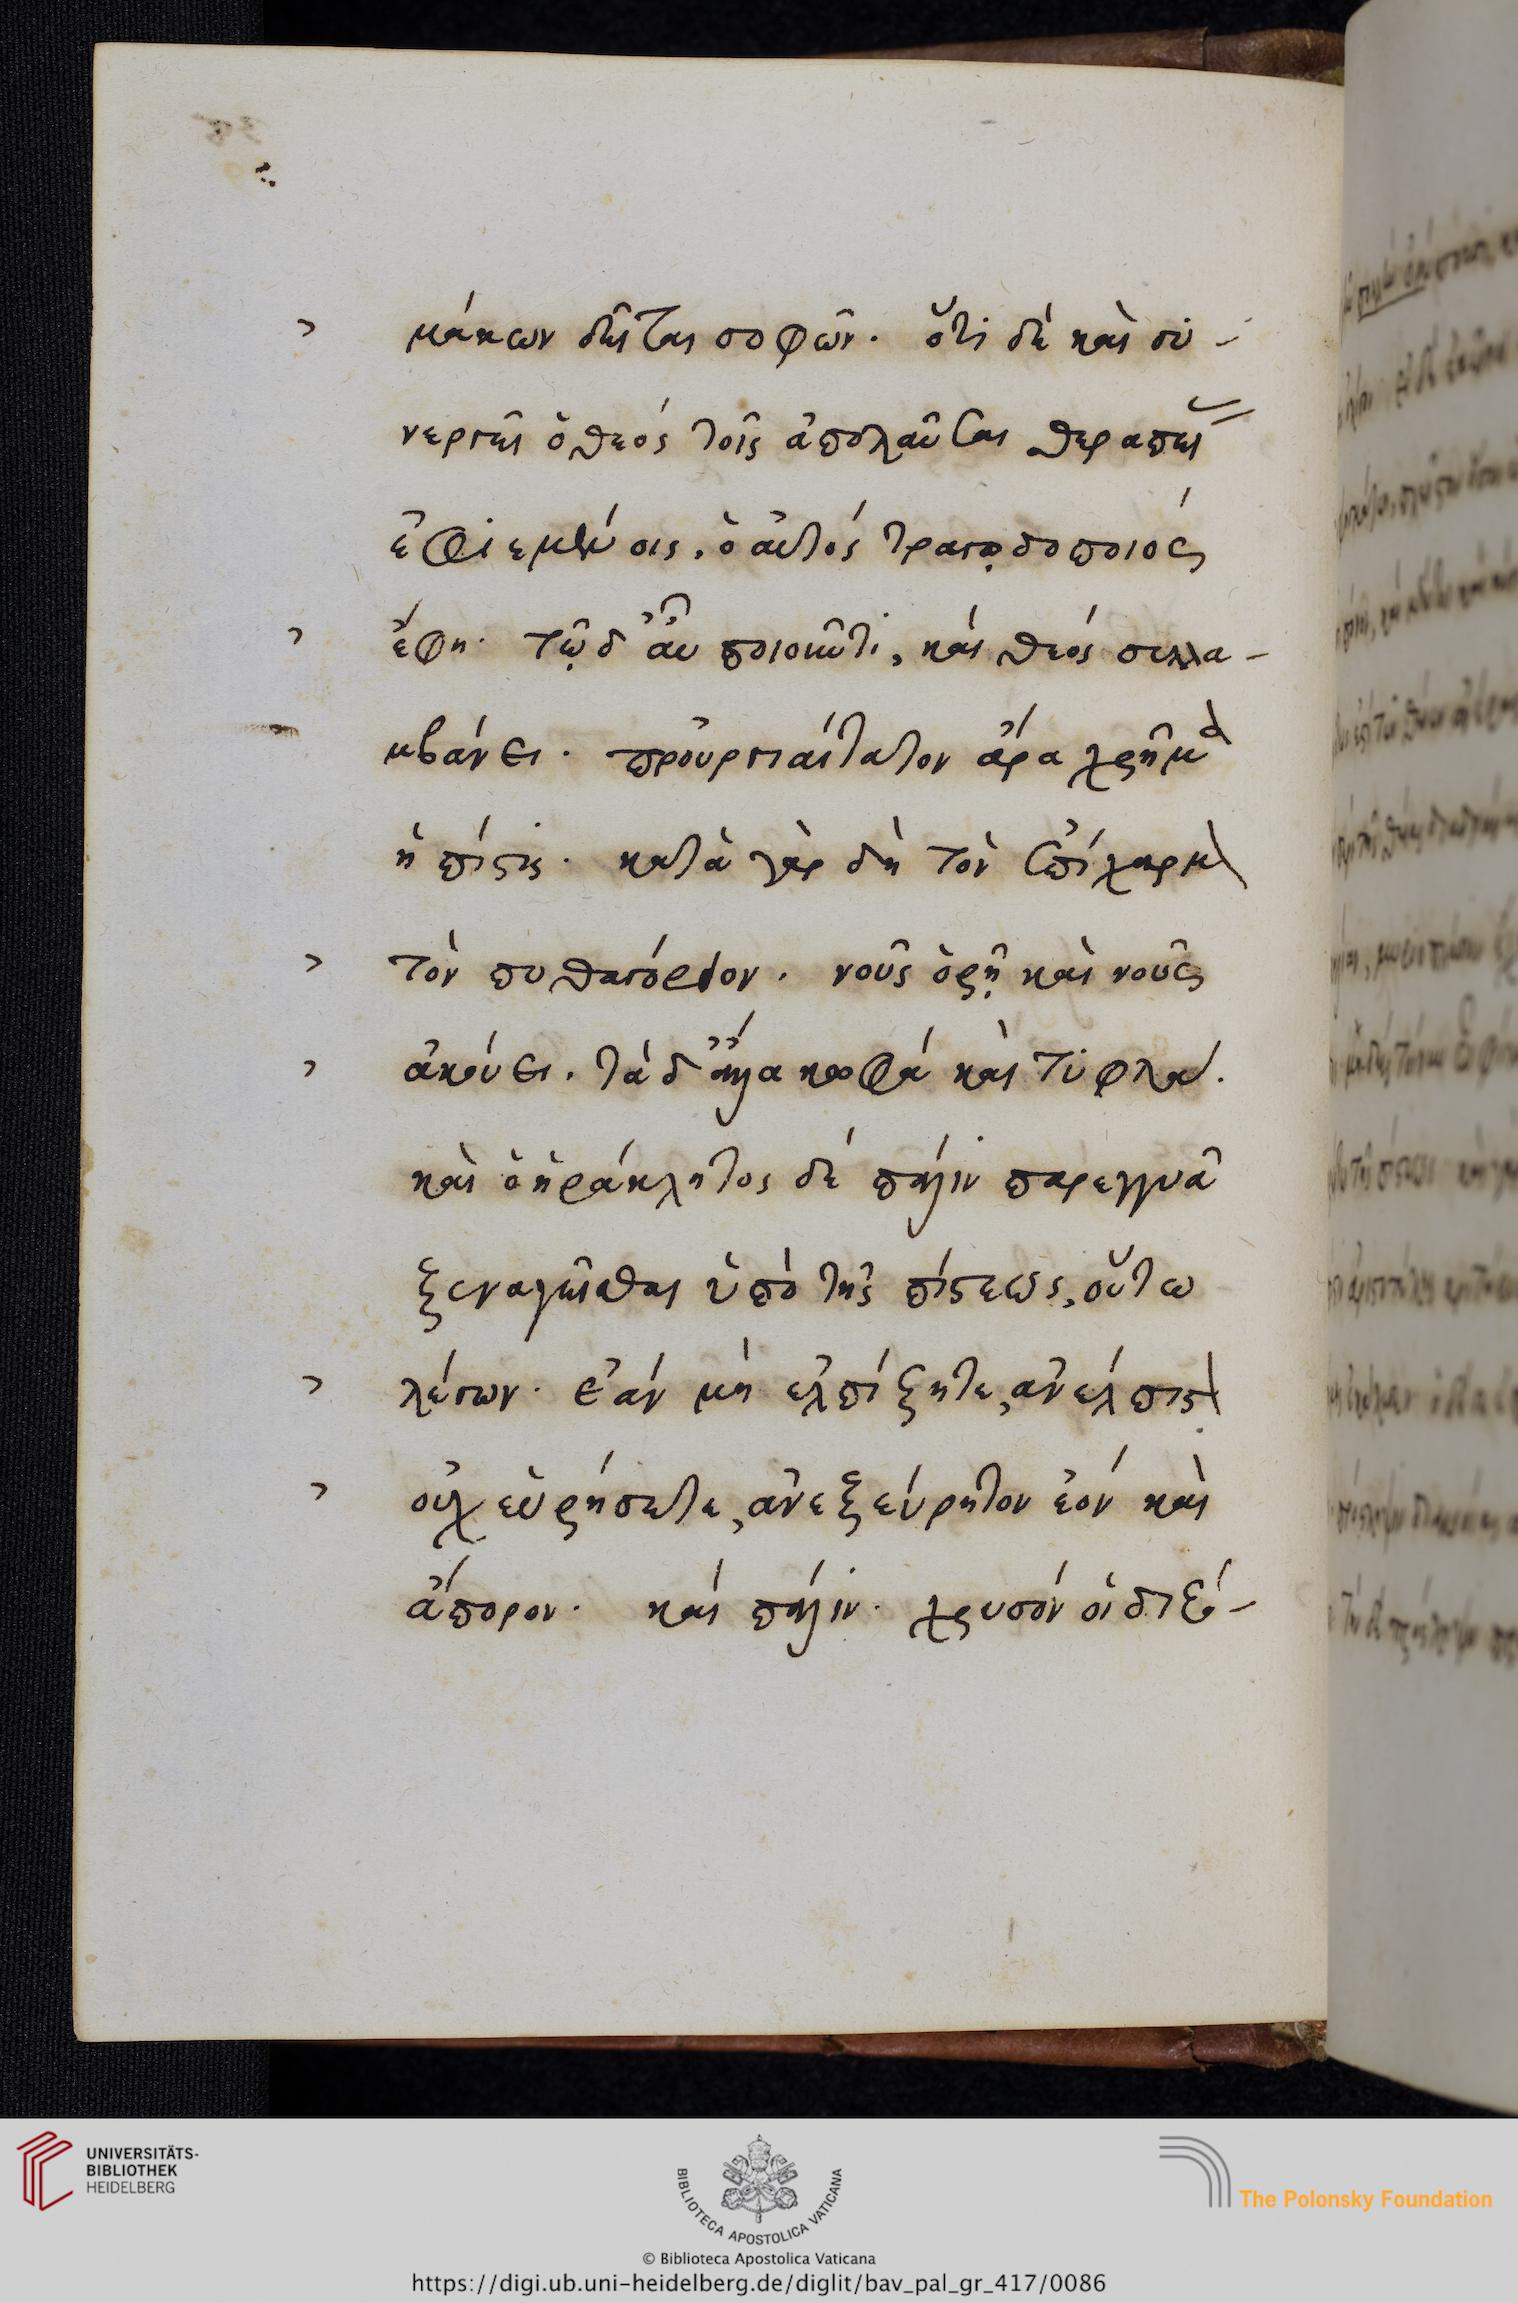 μάκων δεῖται σοφῶν. ὅτι δὲ καὶ συ-
νεργεῖ ὁ θεὸς τοῖς ἀπολαῦσαι θεραπεί
ἐφιεμένοις, ὁ αὐτὸς τραγῳδοποιὸς
ἔφη. τῷ δ' αὖ ποιοῦντι, καὶ θεὸς συλλα-
μβάνει. προὐργιαίτατον ἄρα χρῆμα
ἡ πίστις. κατὰ γὰρ δὴ τὸν Ἐπίχαρμ
τὸν πυθαγόρειον. νοῦς ὁρῇ καὶ νοῦς
ἀκούει. τὰ δ' ἄλλα κωφὰ καὶ τυφλά.
καὶ ὁ ἡράκλητος δὲ πάλιν παρεγγυᾷ
ξεναγεῖσθαι ὑπὸ τῆς πίστεως, οὕτω
λέγων. ἐὰν μὴ ἐλπίζητε, ἀνέλπιστ
οὐχ εὑρήσετε, ἀνεξεύρητον ἐὸν καὶ
ἄπορον. καὶ πάλιν. χρυσὸν οἱ διζή-
UNIVERSITÄTS-
BIBLIOTHEK
HEIDELBERG
BIBLIOTECA APOSTOLICA VATICANA
The Polonsky Foundation
© Biblioteca Apostolica Vaticana
https://digi.ub.uni-heidelberg.de/diglit/bav_pal_gr_417/0086